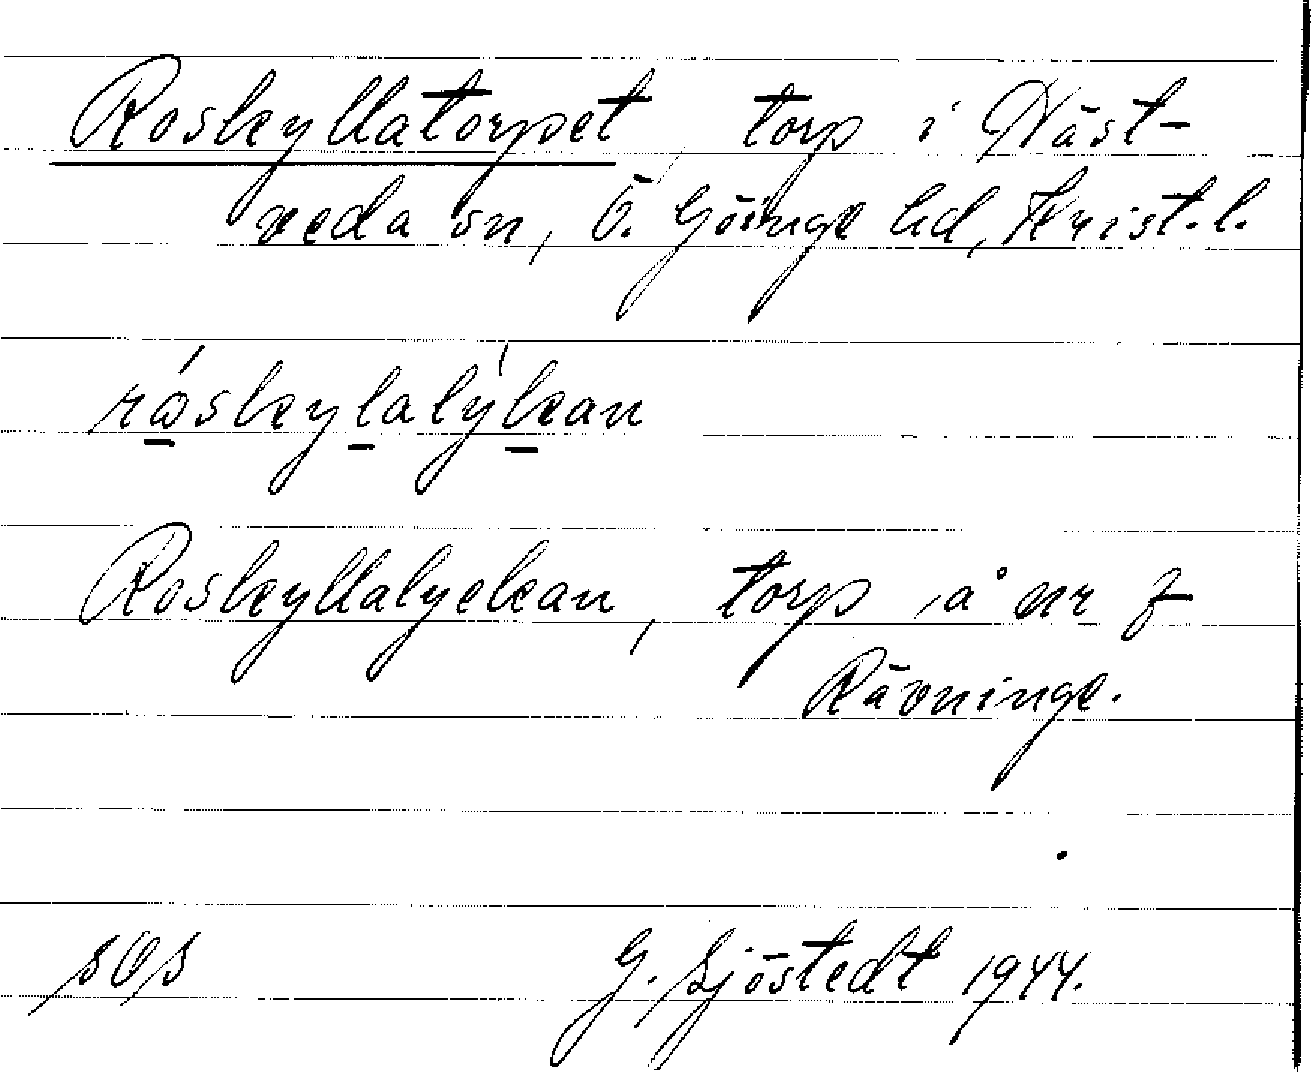 Roskyllatorpet torp i Näst-
veda sn, Ö. Göinge hd, Krist.l.
råskylalýkan
Roskyllalyckan, torp å nr 7
Rävninge.
sOs G. Sjöstedt 1944.